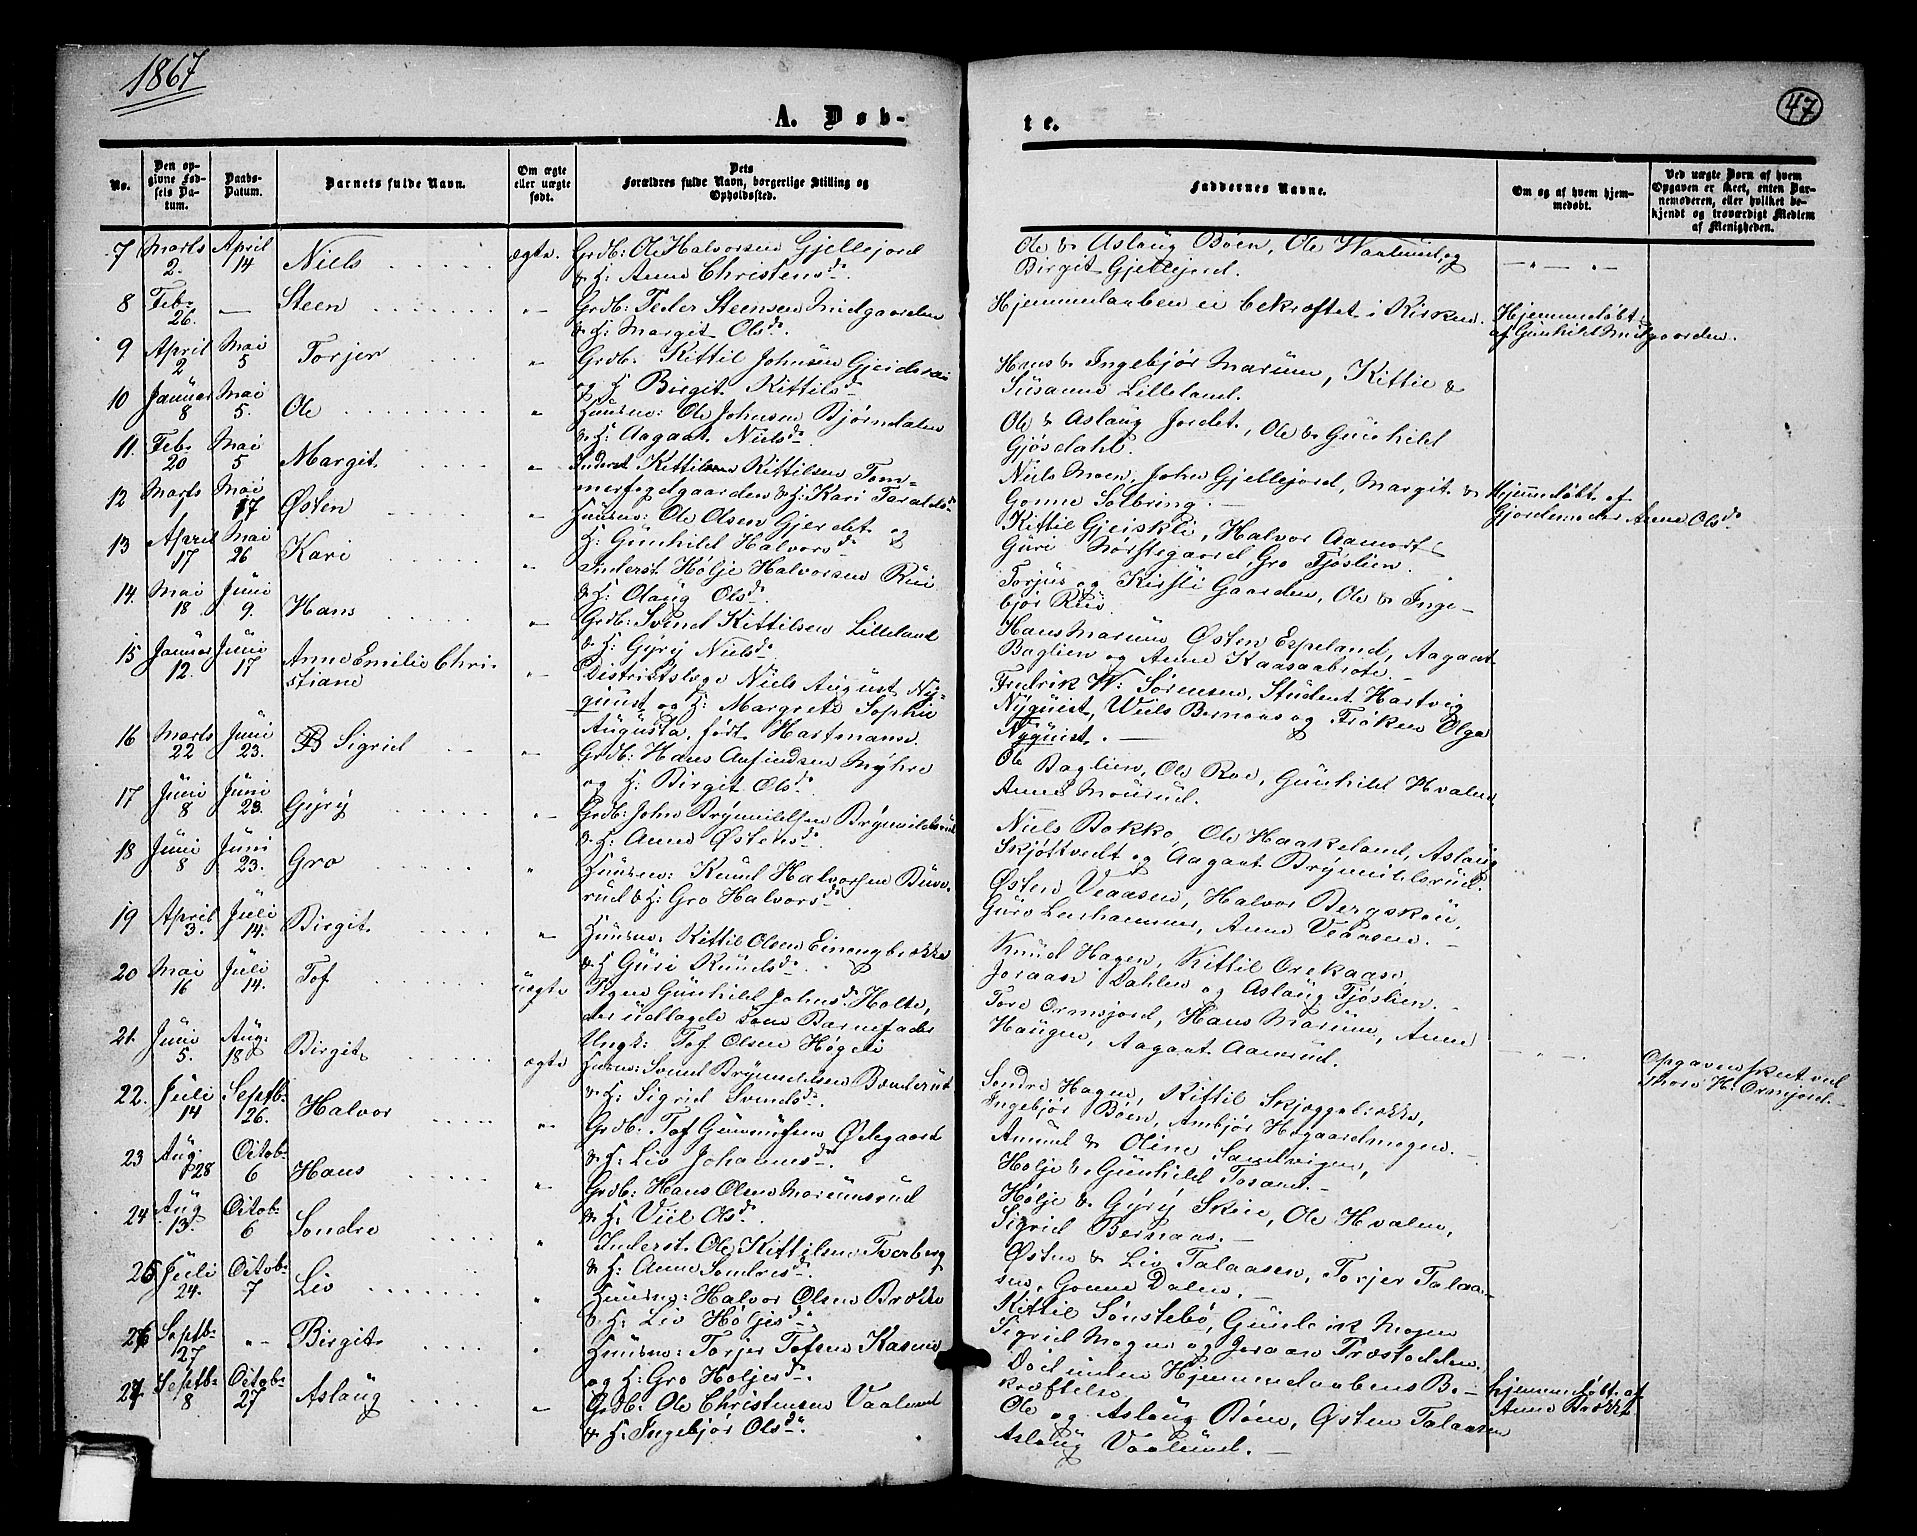 1867
47
A. Døb-
te.
No.
Den op-
givne Fød-
sels Da-
tum.
Daabs-
Datum.
Barnets fulde Navn.
Om ægte
eller uægte
født.
Dets
Forældres fulde Navn, borgerlige Stilling og
Opholdssted.
Faddernes Navne.
Om og af hvem hjem-
medøbt.
Ved uægte Børn af hvem
Opgaven er skeet, enten Bar-
nemoderen, eller hvilket be-
kjendt og troværdigt Medlem
af Menigheden.
7 Marts 2. April 14 Niels ægte Grdb: Ole Halvorsen Gjellejord
& H: Anne Christensd.
Ole & Aslaug Bøen, Ole Waalund, og
Birgit Gjellejord.
8 Feb. 26. — Steen " Grdb: Peder Steensen Midgaarden
& H: Margit Olsd.
Hjemmedaaben ei bekræftet i Kirken. Hjemmedøbt
af Gunhild Midgaarden.
9 April 2 Mai 5 Torjer " Grdb: Kittil Johnsen
og H Birgit Kittilsd.
Hans & Ingebjør Marum, Kittil &
Susanne Lilleland.
10 Januar 8 Mai 5. Ole " Huusm: Ole Johnsen Bjørndalen
& H: Aagaat Nielsd.
Ole & Aslaug Jordet, Ole & Gunhild
Gjøsdahl.
11. Feb. 20 Mai 5 Margit " Inderst Kittil Kittilsen Tom-
merfogdgaarden & H: Kari Taraldsd.
Niels Moen, John Gjellejord, Margit &
Gonne Solbring.
12 Marts 1 Mai 17 Østen " Huusm: Ole Olsen Gjerdet og
H: Gunhild Halvorsd.
Kittil Gjeiskli, Halvor Aamodt
Guri Nørstegaard, Gro Tjøslien.
Hjemmedøbt af
Gjordemoder Anne Olsd.
13 April 17 Mai 26 Kari " Inderst Hølje Halvorsen Rui
& H: Olaug Olsd.
Torjus og Kirsti Gaarden, Ole & Inge-
bjør Rui.
14. Mai 18 Juni 9. Hans " Grdb: Svend Kittilsen Lilleland
& H: Gyrÿ Nielsd.
Hans Marum, Østen Espeland, Aagaat
Baglien og Anne Kaasaabrote.
15 Januar 12. Juni 17 Anne Emilie Chri-
stiane " Distriktslæge Niels August Ny-
quist og H: Margrete Sophie
Augusta, født Hartmann.
Fredrik W. Sørensen, Student Hartvig
Nyquist, Niels Bernaas og Frøken Olga
Nyquist.
16 Marts 22 Juni 23. Sigrid " Grdb: Hans Anfindsen Myhre
og H. Birgit Olsd.
Ole Baglien, Ole Roe, Gunhild Hvalen
Anne Mourud.
17 Juni 8 Juni 23. Gyrÿ " Grdb: John Brynnildsen Brynnildsrud
& H: Anne Østensd.
Niels Bakke, Ole Haakeland, Aslaug
Skjøttvedt og Aagaat Brynnildsrud.
18 Juni 8 Juni 23. Gro " Huusm: Knud Halvorsen Buve-
rud & H: Gro Halvorsd.
Østen Veaasen, Halvor Bergskaii,
Guro Lurhammer, Anne Veaasen.
19 April 3. Juli 14. Birgit " Huusm: Kittil Olsen Einongbrække
& H Guri Knudsd.
Knud Hagen, Kittil Orekaasa,
Joraan Dahlen og Aslaug Tjøslien.
20 Mai 16 Juli 14. Tof uægte Pigen Gunhild Johnsd. Holte,
der udlagde som Barnefader
Ungk: Tof Olsen Høgeli
Tore Ormsjord, Hans Marum, Anne
Haugen, Aagaat Aamrud.
Opgaven skeet ved
Thore H. Ormsjord.
21. Juni 5. Aug. 18 Birgit ægte Huusm: Svend Brynnildsen Bænderud
& H: Sigrid Svendsd.
Sondre Hagen, Kittil Skjeggebrække,
Ingebjør Bøen, Ambjør Høgaardmogen.
22. Juli 14 Septb. 26. Halvor " Grdb: Tof Gunnufsen Ødegaard
& H: Liv Johannesd.
Amund & Oline Sandvigen,
Hølje & Gunhild Tosand.
23 Aug. 28 Octob. 6 Hans " Grdb: Hans Olsen Marumsrud
& H: Viel Olsd.
Hølje & Gyrÿ Skiie, Ole Hvalen,
Sigrid Bernaas.
24 Aug 13. Octob. 6 Sondre " Inderst Ole Kittilsen Tverberg
& H: Anne Sondresd.
Østen & Liv Talaasen, Torjer Talaa-
sen, Gonne Dalen.
25 Juli 24. Octob. 7 Liv " Huusm: Halvor Olsen Brække
& H: Liv Høljesd.
Kittil Sønstebø, Gunleik Mogen
Sigrid Mogen og Joraan Træstadden.
26 Septb. 27 " Birgit " Huusm: Torjer Tofsen Kasin
og H: Gro Høljesd.
Død inden Hjemmedaabens Be-
kræftelse
Hjemmedøbt af
Anne Brække.
27 Septb. 8 Octob. 27 Aslaug " Grdb: Ole Christensen Vaalund
& H: Ingebjør Olsd.
Ole og Aslaug Bøen, Østen Talaasen
Aslaug Vaalund.